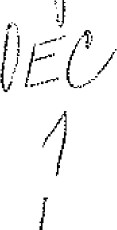 DEC
1
1